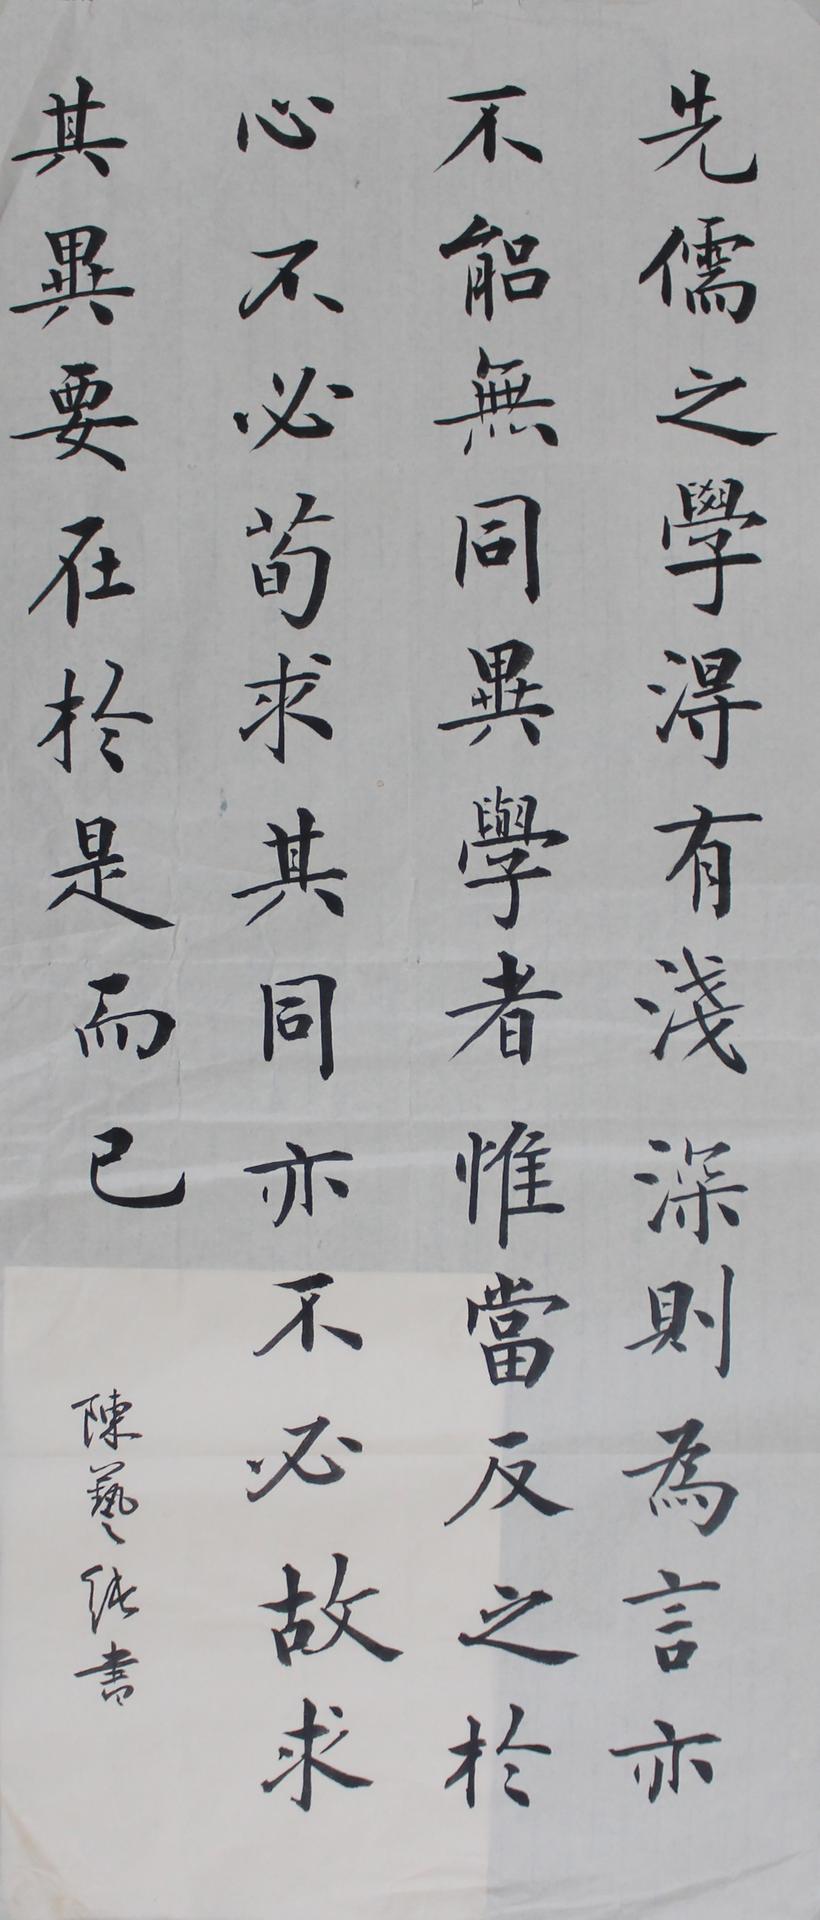 先儒之學得有淺深則為言亦
不能無同異學者惟當反之於
心不必苟求其同亦不必故求
其異要在於是而已
陳藝 書